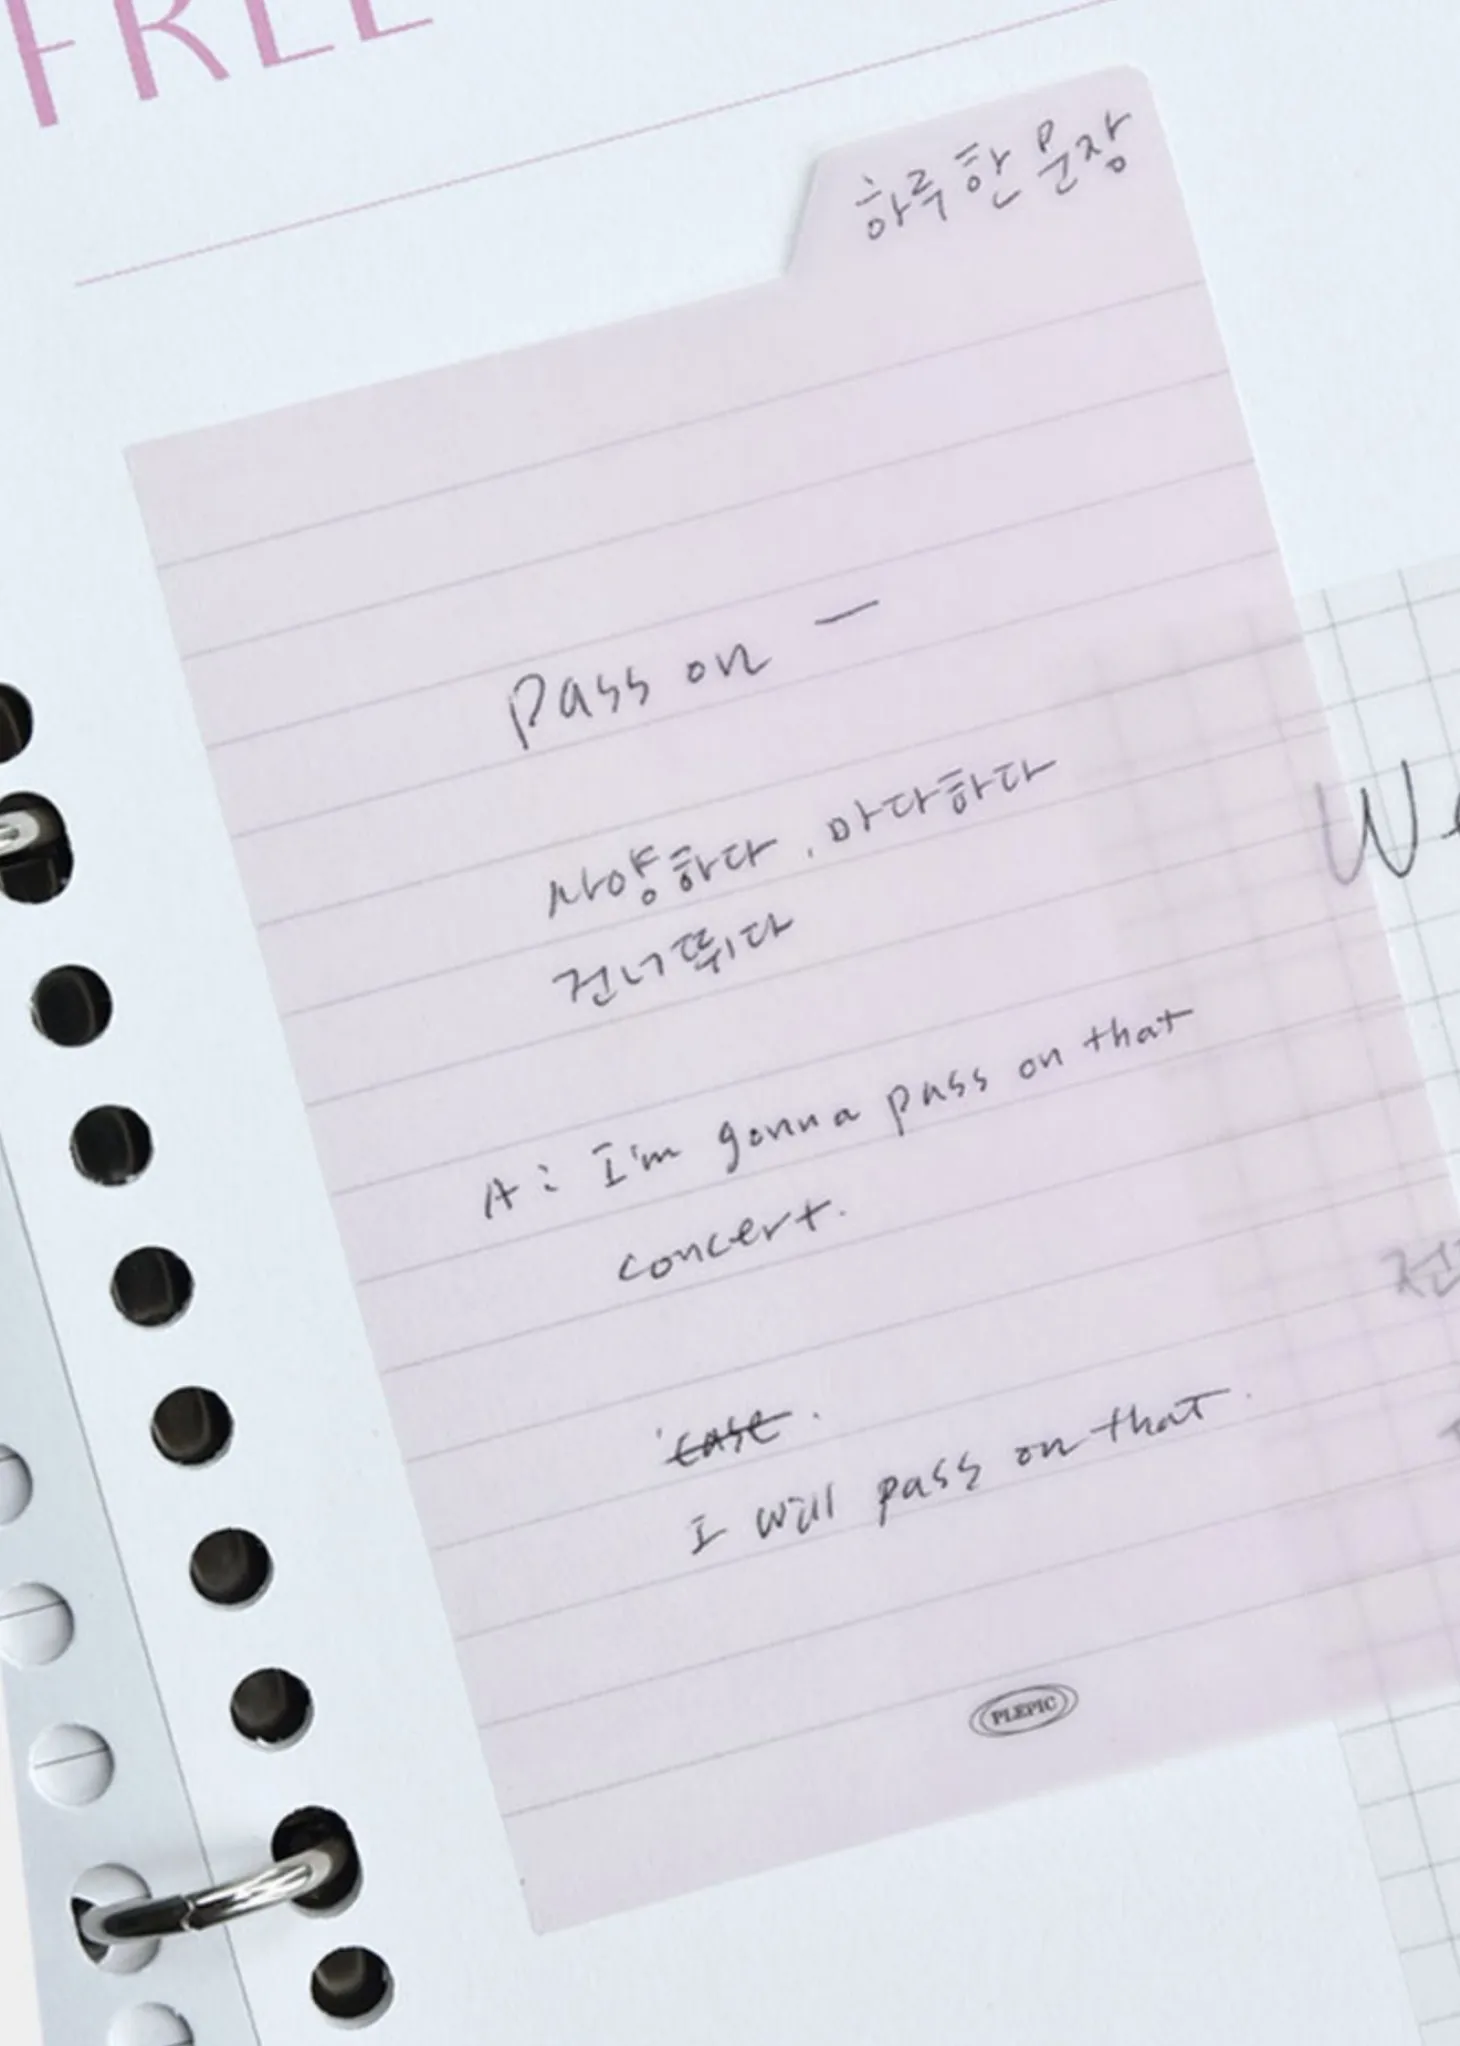 FREE
하루 한 문장
Pass on —
사양하다, 마다하다
건너뛰다
A: I'm gonna pass on that
concert.
case.
I will pass on that.
PLEPIC